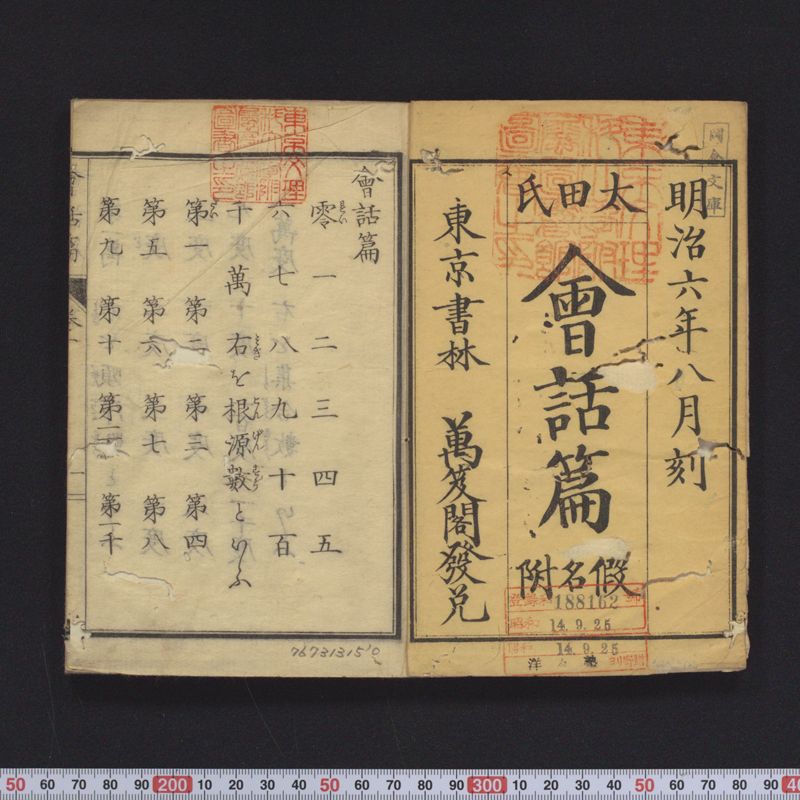 明治六年八月刻
太田氏
會話篇
假名附
東京書林 萬笈閣發兌
188162
昭和 14.9.25
昭和 14.9.25
會話篇
零 一 二 三 四 五
六 七 八 九 十 百
千 萬 右を根源數といふ
第一 第二 第三 第四
第五 第六 第七 第八
第九 第十 第二 第千
會話篇
7673131510
50 60 70 80 90 200 10 20 30 40 50 60 70 80 90 300 10 20 30 40 50 60 70 80 90